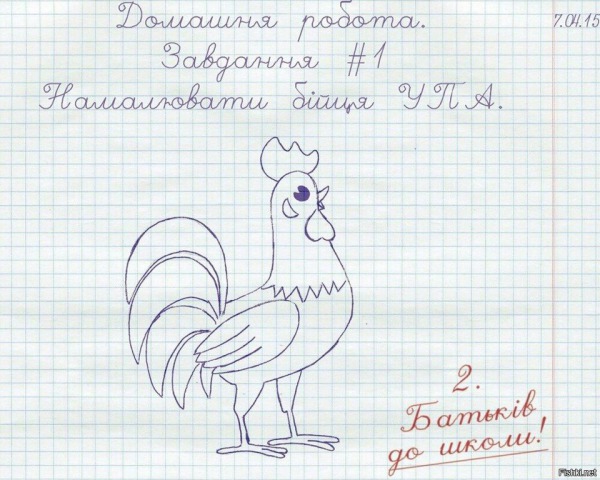 Домашня робота.
7.04.15
Завдання #1
Намалювати бійця УПА.
2.
Батьків
до школи!
Fishki.net